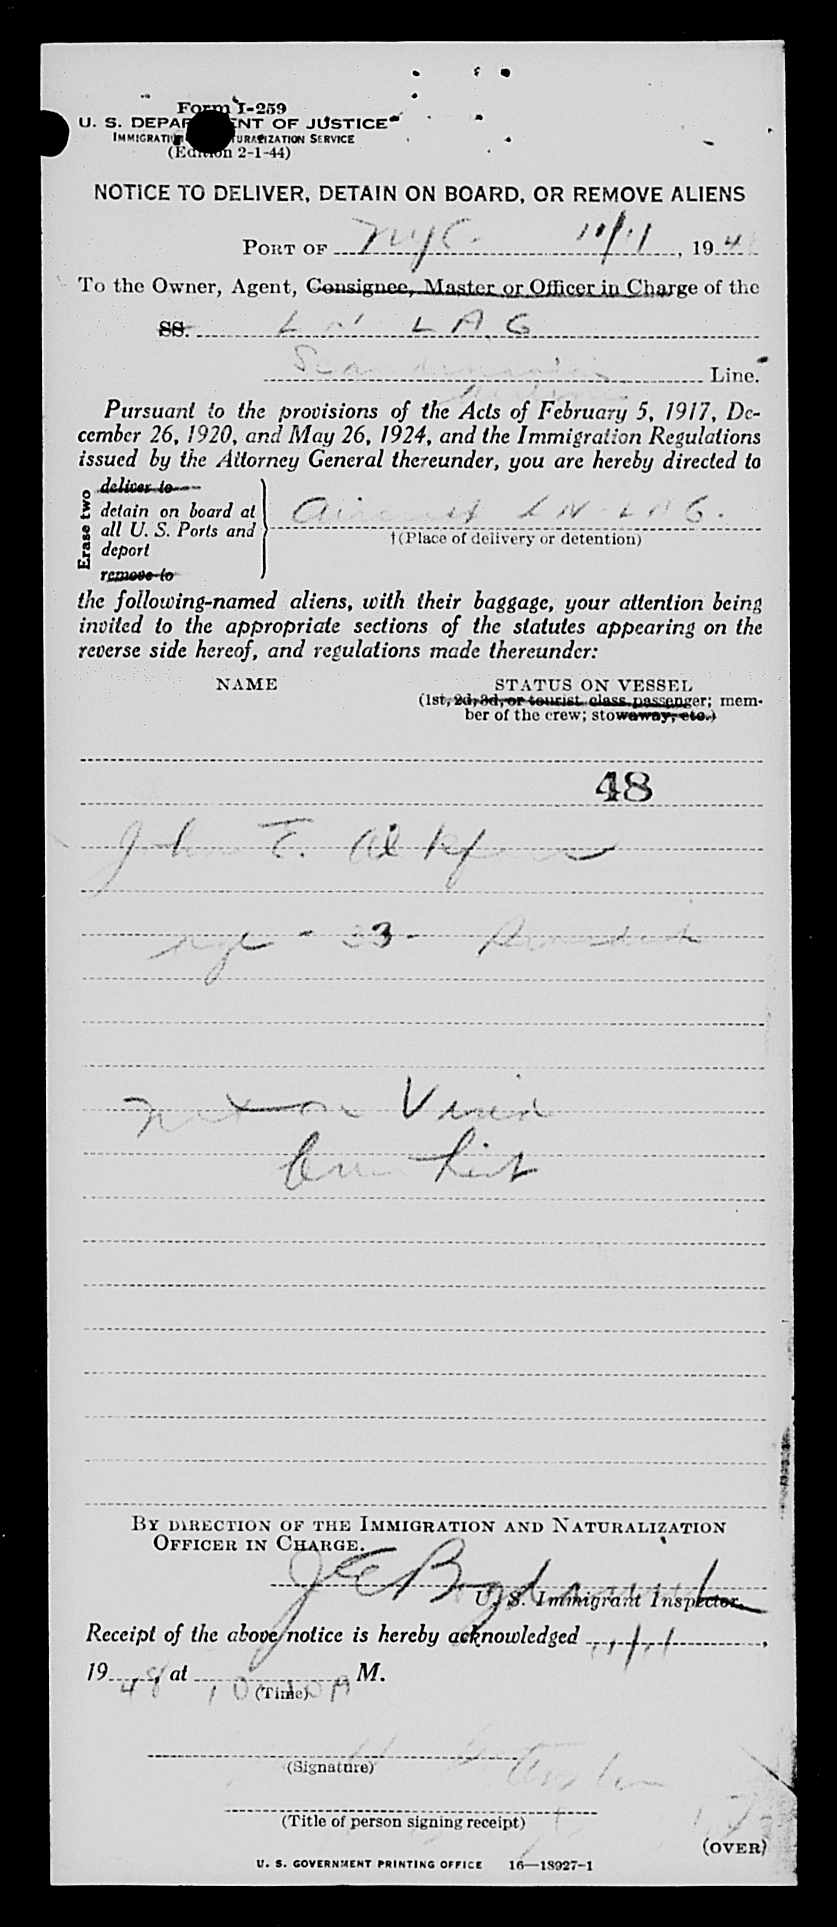 Form I-259
U. S. DEPARTMENT OF JUSTICE
IMMIGRATION NATURALIZATION SERVICE
(Edition 2-1-44)
NOTICE TO DELIVER, DETAIN ON BOARD, OR REMOVE ALIENS
PORT OF NYC. 11/11, 194
To the Owner, Agent, Consignee, Master or Officer in Charge of the
SS. LN LAG
Scandinavian Line.
Airline
Pursuant to the provisions of the Acts of February 5, 1917, De-
cember 26, 1920, and May 26, 1924, and the Immigration Regulations
issued by the Attorney General thereunder, you are hereby directed to
Erase two
deliver to
detain on board at
all U. S. Ports and
deport
remove to
Aircraft LN-LAG.
†(Place of delivery or detention)
the following-named aliens, with their baggage, your attention being
invited to the appropriate sections of the statutes appearing on the
reverse side hereof, and regulations made thereunder:
NAME
STATUS ON VESSEL
(1st, 2d, 3d, or tourist class passenger; mem-
ber of the crew; stowaway, etc.)
48
John E.
age - 33 -
Not on Visa
Crew List
BY DIRECTION OF THE IMMIGRATION AND NATURALIZATION
OFFICER IN CHARGE.
U. S. Immigrant Inspector.
Receipt of the above notice is hereby acknowledged 11/11,
1948, at 10 A M.
(Time)
(Signature)
(Title of person signing receipt)
(OVER)
U. S. GOVERNMENT PRINTING OFFICE 16—18927-1